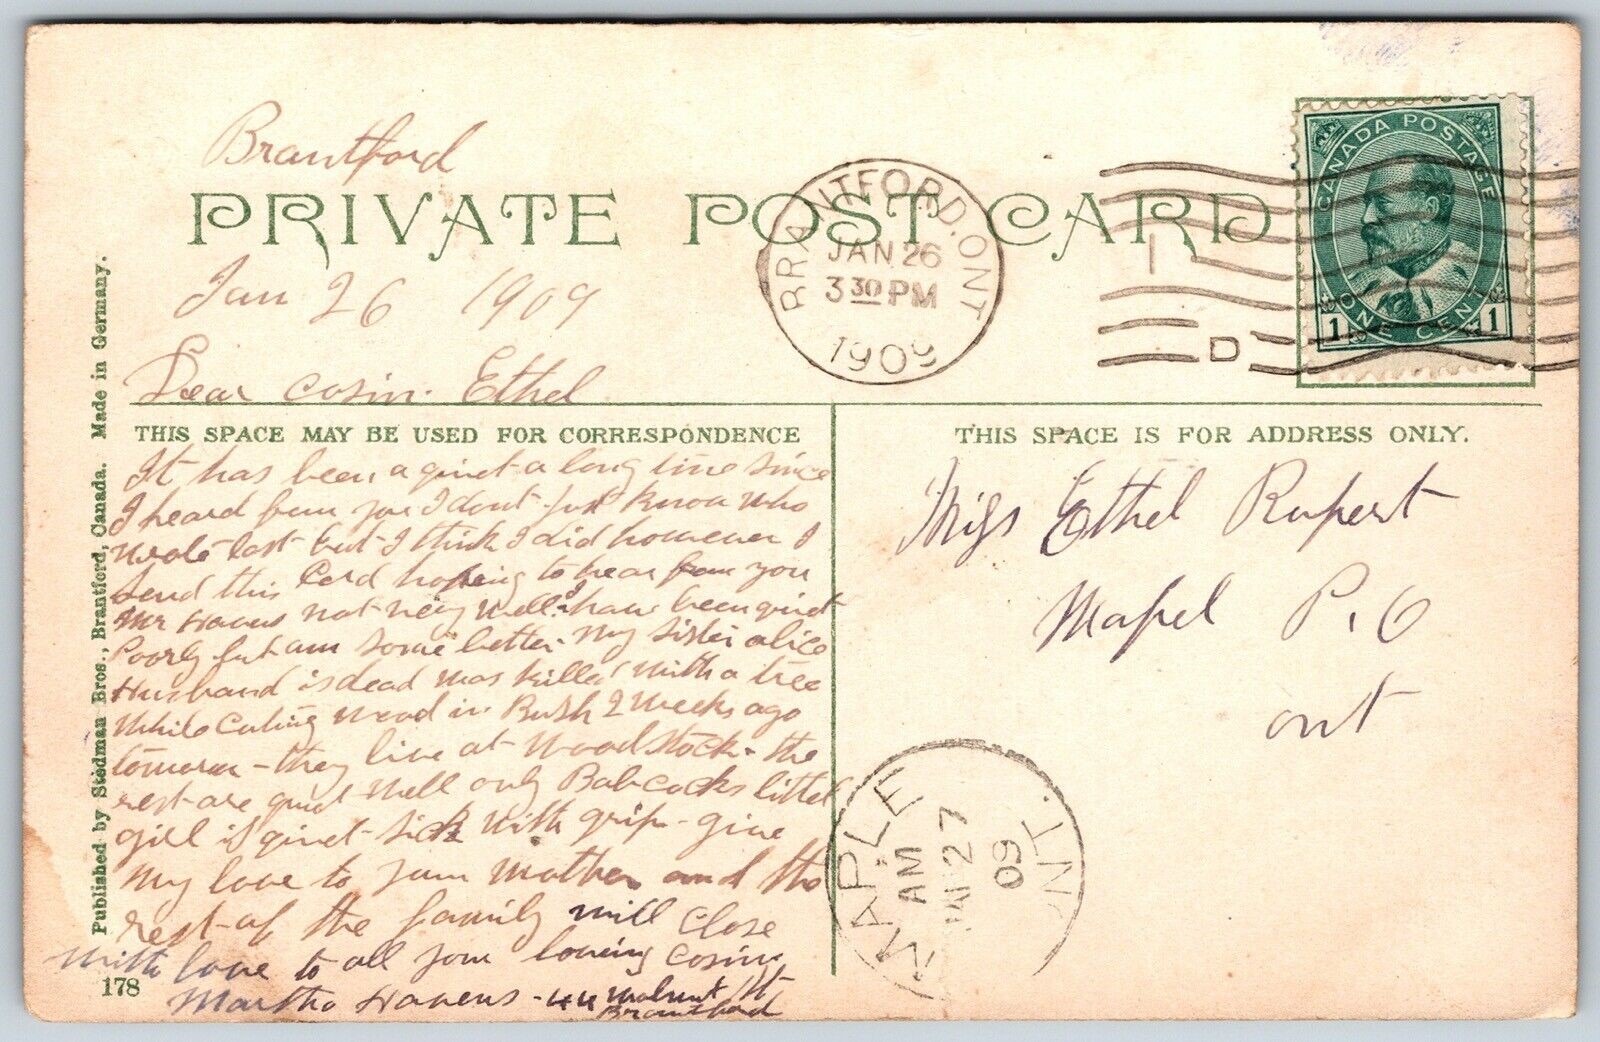 Brantford
PRIVATE POST CARD
BRANTFORD, ONT
JAN 26
3 30 PM
1909
1
D
CANADA POSTAGE
1 ONE CENT 1
Jan 26 1909
Dear cosin. Ethel
THIS SPACE MAY BE USED FOR CORRESPONDENCE
It has been a quiet a long time since
I heard from you I dont just know who
wrote last but I think I did however I
send this Card hopeing to hear from you
Mr Havens not very well. I have been quiet
Poorly but am some better. My sister alice
Husband is dead was killed with a tree
while cuting wood in Bush 2 weeks ago
tomorow - they live at Woodstock - the
rest are quiet well only Babcocks little
girl is quiet sick with grip - give
My love to your Mother and the
rest of the family will close
with love to all your loveing cosin
Martha Havens - 44 Walnut St
Brantford
THIS SPACE IS FOR ADDRESS ONLY.
Miss Ethel Rupert
Mapel P. O
ont
MAPLE ONT.
AM
JA 27
09
Published by Stedman Bros., Brantford, Canada. Made in Germany.
178